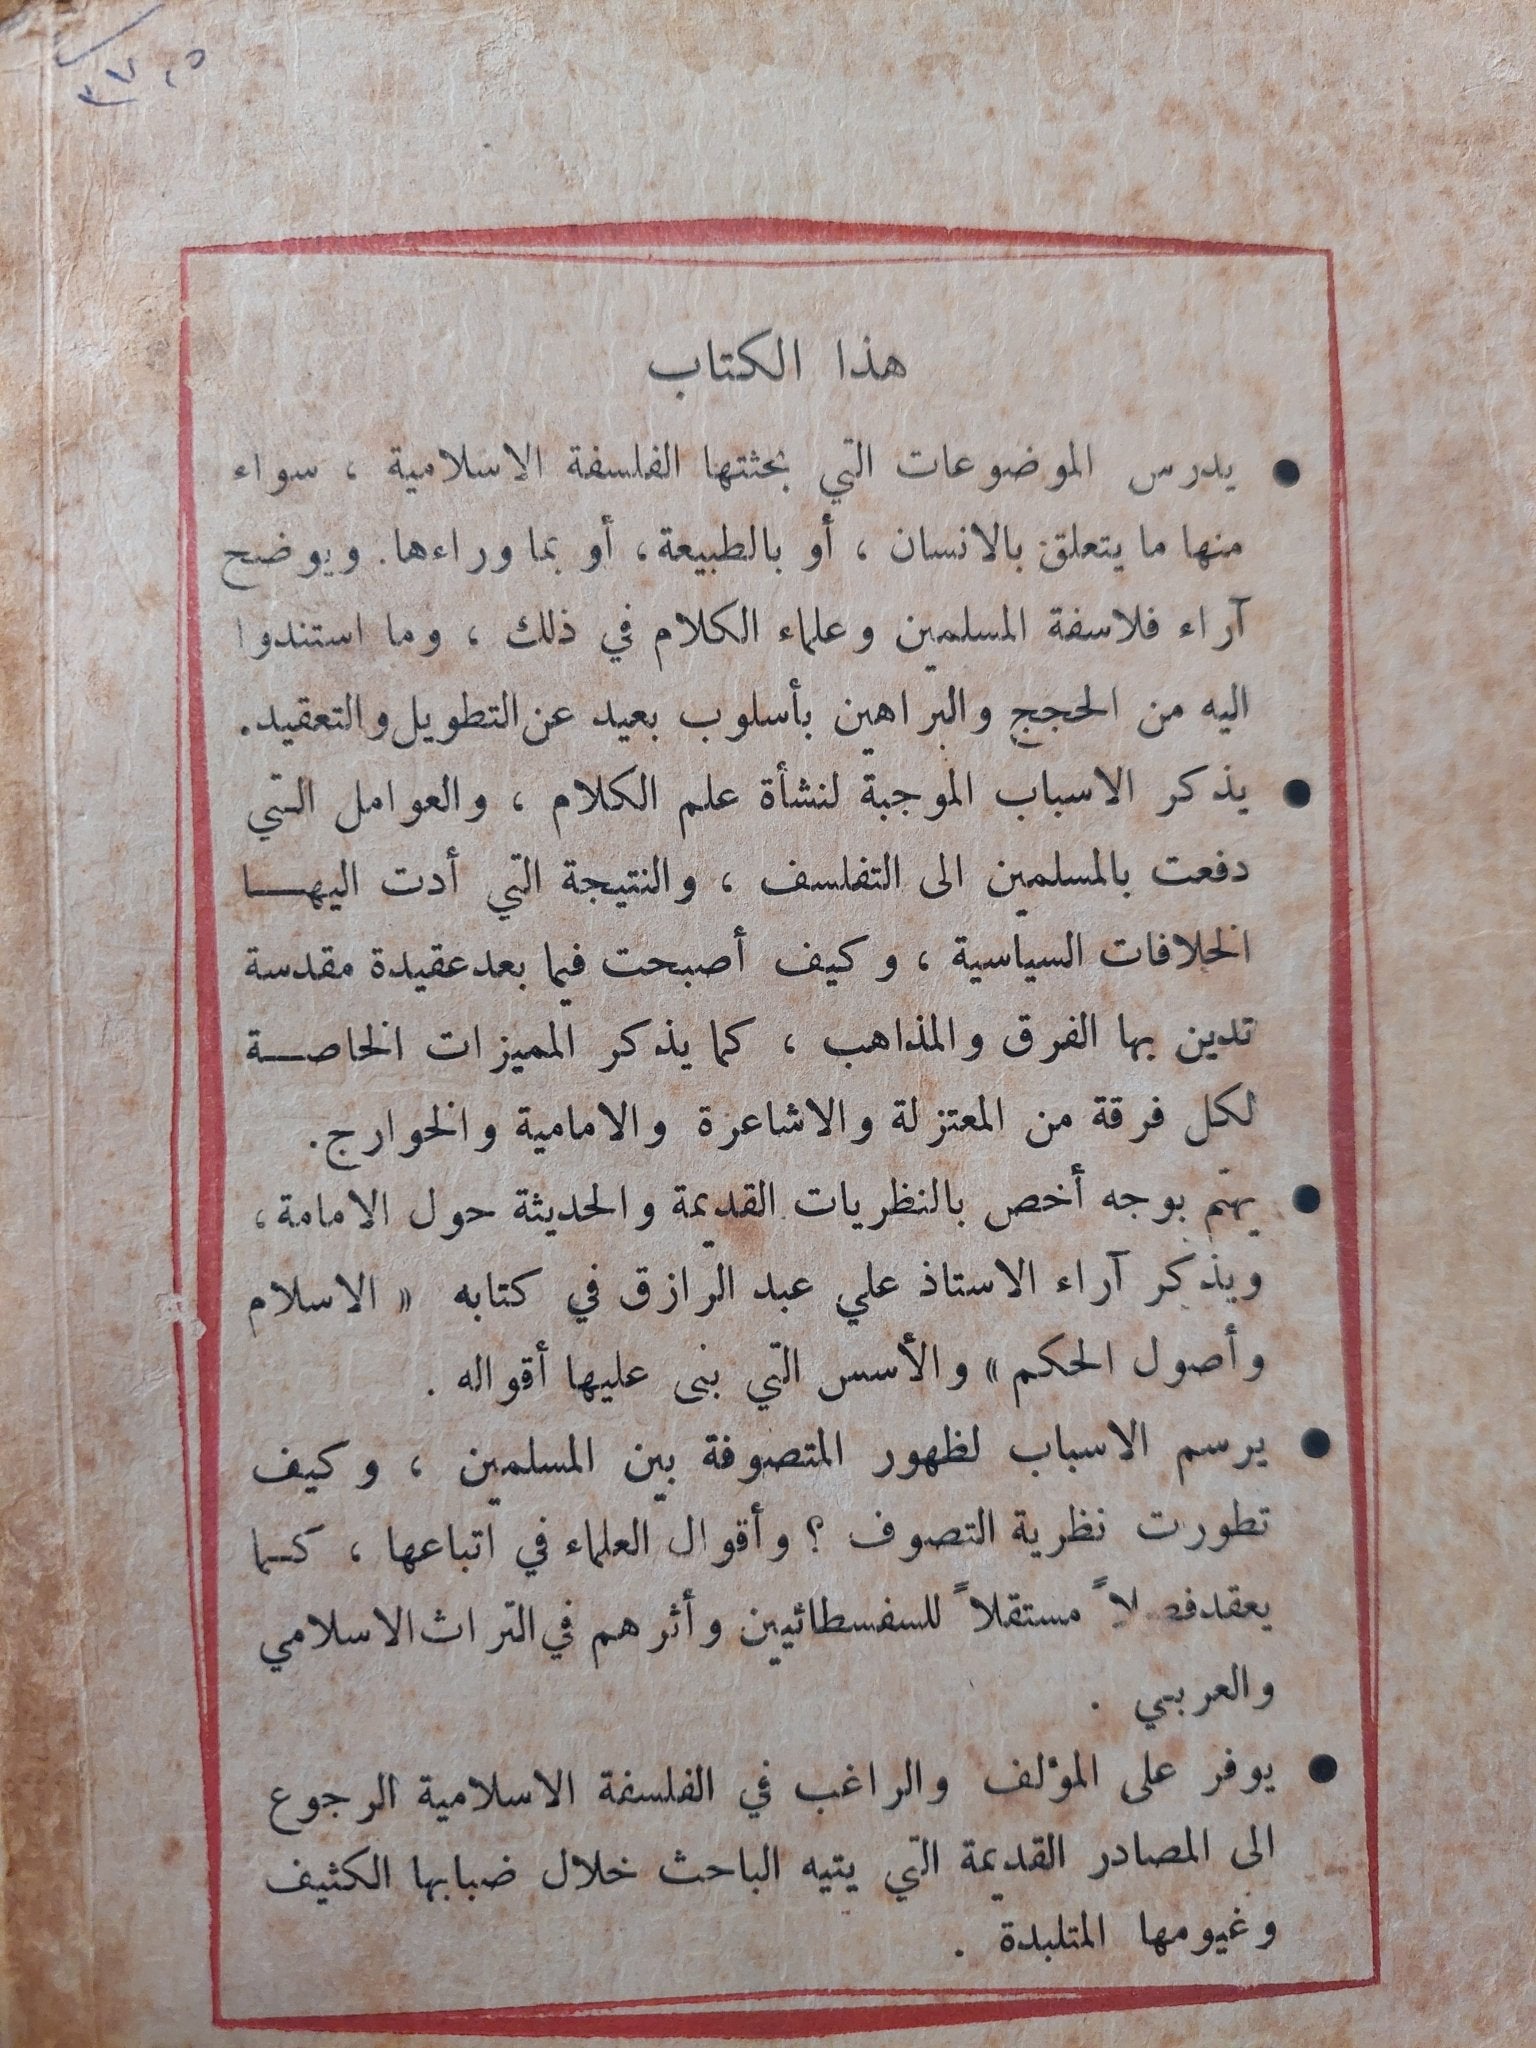 هذا الكتاب
● يدرس الموضوعات التي بحثتها الفلسفة الاسلامية ، سواء
منها ما يتعلق بالانسان ، أو بالطبيعة ، أو بما وراءها . ويوضح
آراء فلاسفة المسلمين وعلماء الكلام في ذلك ، وما استندوا
اليه من الحجج والبراهين بأسلوب بعيد عن التطويل والتعقيد .
● يذكر الاسباب الموجبة لنشأة علم الكلام ، والعوامل التي
دفعت بالمسلمين الى التفلسف ، والنتيجة التي أدت اليهـــا
الخلافات السياسية ، وكيف أصبحت فيما بعد عقيدة مقدسة
تدين بها الفرق والمذاهب ، كما يذكر المميزات الخاصـــة
لكل فرقة من المعتزلة والاشاعرة والامامية والخوارج .
● يهتم بوجه أخص بالنظريات القديمة والحديثة حول الامامة ،
ويذكر آراء الاستاذ علي عبد الرازق في كتابه « الاسلام
وأصول الحكم » والأسس التي بنى عليها أقواله .
● يرسم الاسباب لظهور المتصوفة بين المسلمين ، وكيف
تطورت نظرية التصوف ؟ وأقوال العلماء في اتباعها ، كـما
يعقد فصلاً مستقلاً للسفسطائيين وأثرهم في التراث الاسلامي
والعربي .
● يوفر على المؤلف والراغب في الفلسفة الاسلامية الرجوع
الى المصادر القديمة التي يتيه الباحث خلال ضبابها الكثيف
وغيومها المتلبدة .